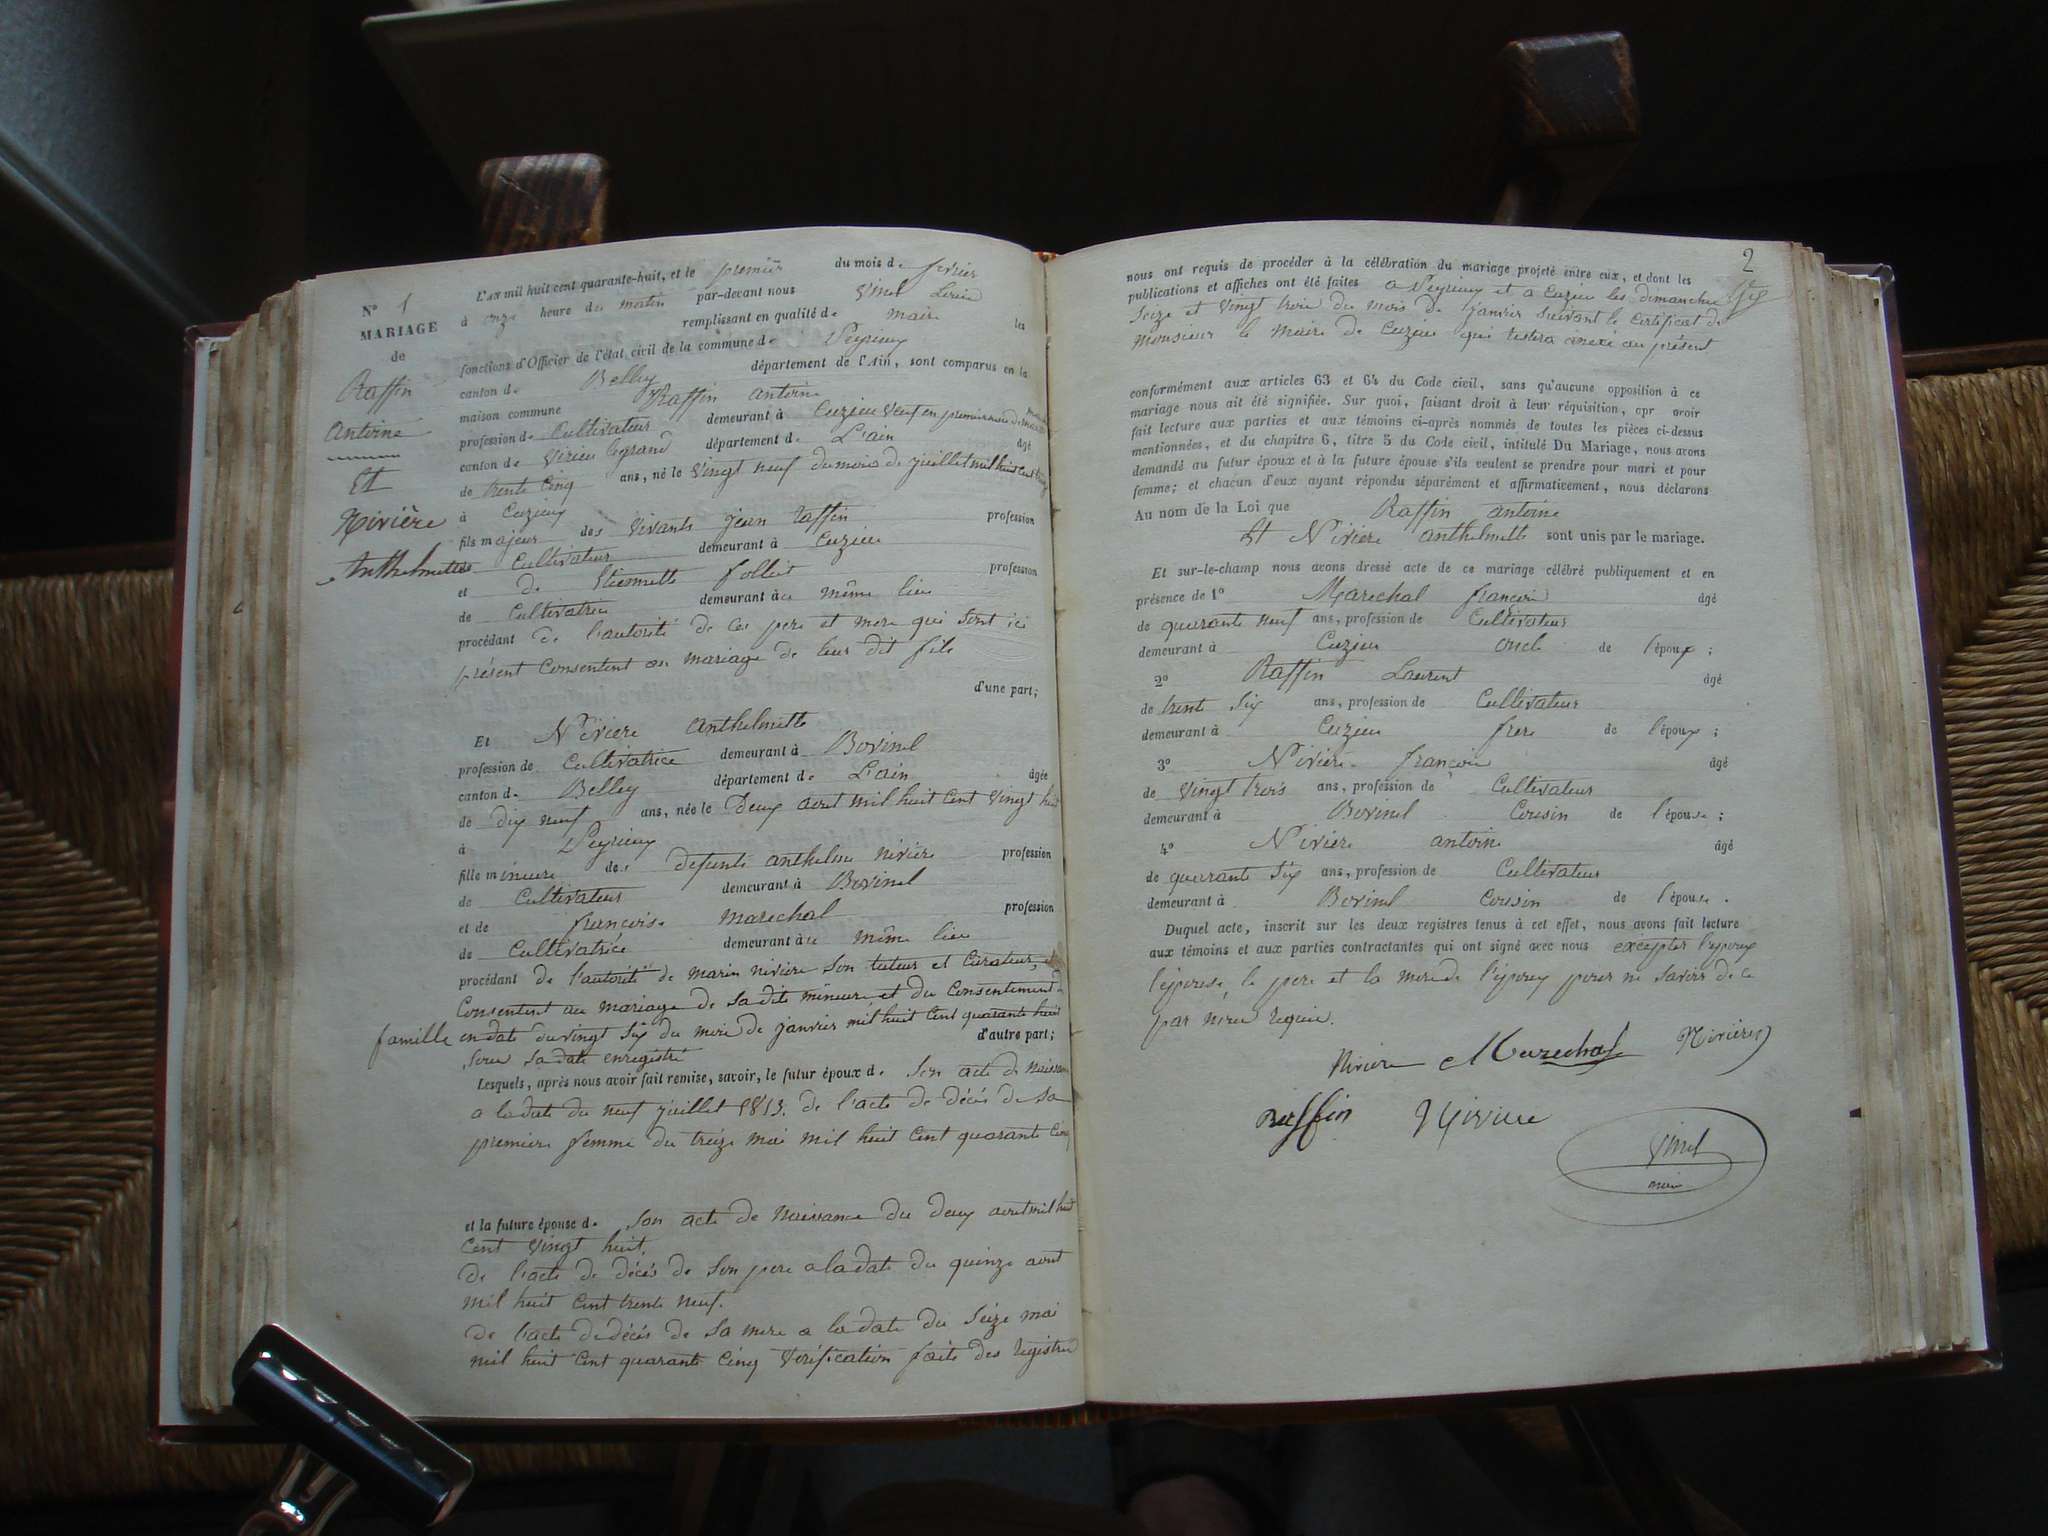 N° 1
MARIAGE
de
Raffin
Antoine
Et
Nivière
Anthelmette
L'an mil huit cent quarante-huit, et le premier du mois de fevrier
à onze heure de matin par-devant nous Vinel
remplissant en qualité de maire les
fonctions d'Officier de l'état civil de la commune de Peyrieux
canton de Belley département de l'Ain, sont comparus en la
maison commune Raffin antoine
profession de Cultivateur demeurant à Cuzieu Veuf en
canton de Virieu legrand département de L'ain âgé
de trente Cinq ans, né le vingt neuf du mois de juillet mil huit cent
à Cuzieu
fils majeur des vivants jean raffin profession
de Cultivateur demeurant à Cuzieu
et de Etiennette follier profession
de Cultivatrice demeurant à même lieu
procédant de l'autorité de Ces pere et mere qui sont ici
présent Consentent au mariage de leur dit fils
d'une part;
Et Niviere anthelmette
profession de Cultivatrice demeurant à Bovinel
canton de Belley département de L'ain âgée
de dix neuf ans, née le Deux aout mil huit cent vingt huit
à Peyrieux
fille mineure de defunts anthelme niviere profession
de Cultivateur demeurant à Bovinel
et de francoise marechal profession
de Cultivatrice demeurant à même lieu
procédant de l'autorité de marin niviere son tuteur et Curateur, et
Consentent au mariage de sa dite mineure et du Consentement de
famille en date du vingt six du mois de janvier mil huit cent quarante huit
d'autre part;
sous sa date enregistré
Lesquels, après nous avoir fait remise, savoir, le futur époux de Son acte de naissance
a la date du neuf juillet 1813. de l'acte de décés de sa
premiere femme du treize mai mil huit cent quarante cinq
et la future épouse de son acte de naissance du deux aout mil huit
cent vingt huit.
de l'acte de décés de son pere a la date du quinze aout
mil huit cent trente neuf.
de l'acte de décés de sa mere a la date du seize mai
mil huit cent quarante cinq vérification faite des registres
2
nous ont requis de procéder à la célébration du mariage projeté entre eux, et dont les
publications et affiches ont été faites a Peyrieux et a Cuzieu les dimanches
seize et vingt trois du mois de janvier suivant le certificat de
monsieur le maire de Cuzieu qui restera anexé au présent
conformément aux articles 63 et 64 du Code civil, sans qu'aucune opposition à ce
mariage nous ait été signifiée. Sur quoi, faisant droit à leur réquisition, apr avoir
fait lecture aux parties et aux témoins ci-après nommés de toutes les pièces ci-dessus
mentionnées, et du chapitre 6, titre 5 du Code civil, intitulé Du Mariage, nous avons
demandé au futur époux et à la future épouse s'ils veulent se prendre pour mari et pour
femme; et chacun d'eux ayant répondu séparément et affirmativement, nous déclarons
Au nom de la Loi que Raffin antoine
Et Niviere anthelmette sont unis par le mariage.
Et sur-le-champ nous avons dressé acte de ce mariage célébré publiquement et en
présence de 1° Marechal françois âgé
de quarante neuf ans, profession de Cultivateur
demeurant à Cuzieu oncle de l'époux;
2° Raffin Laurent âgé
de trente six ans, profession de Cultivateur
demeurant à Cuzieu frere de l'époux;
3° Niviere françois âgé
de vingt trois ans, profession de Cultivateur
demeurant à Bovinel Cousin de l'épouse;
4° Niviere antoine âgé
de quarante six ans, profession de Cultivateur
demeurant à Bovinel Cousin de l'épouse.
Duquel acte, inscrit sur les deux registres tenus à cet effet, nous avons fait lecture
aux témoins et aux parties contractantes qui ont signé avec nous excepter l'epoux
l'épouse, le pere et la mere de l'époux pour ne savoir de ce
par nous requis.
Niviere Marechal Nivière
Raffin Niviere
Vinel
maire